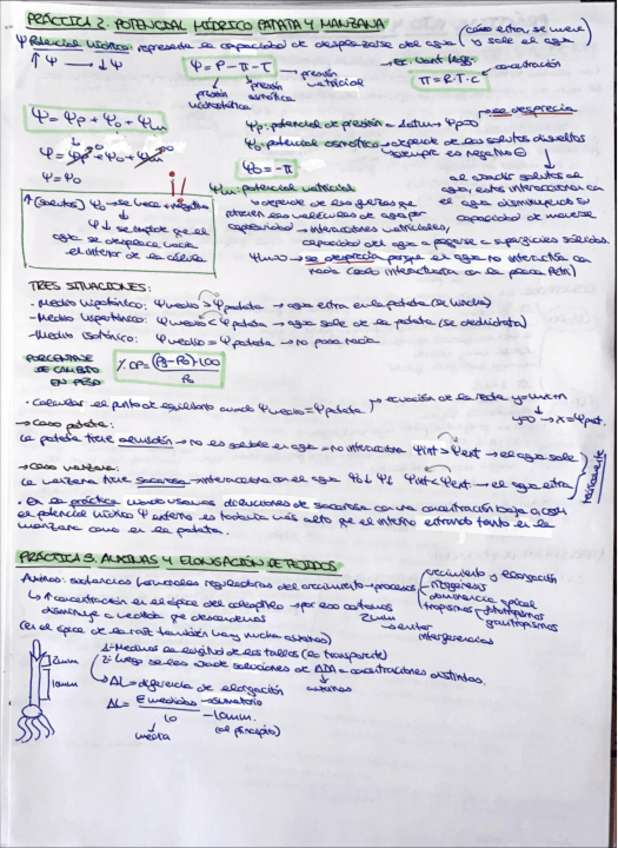 PRÁCTICA 2. POTENCIAL HÍDRICO PATATA Y MANZANA
Ψ Potencial hídrico: representa la capacidad de desplazarse del agua (cómo entra, se mueve y sale el agua)
↑Ψ → ↓Ψ
Ψ = P - π - τ → presión matricial
presión hidrostática
presión osmótica
π = R·T·c
concentración
Ψ = Ψp + Ψo + Ψm
Ψ = Ψp + Ψo + Ψm
Ψ = Ψo
Ψp: potencial de presión = 1atm → Ψp=0
se desprecia
Ψo: potencial osmótico → depende de los solutos disueltos
siempre es negativo ⊖
Ψo = -π
al añadir solutos al agua, estas interaccionan con el agua disminuyendo su capacidad de moverse
Ψm: potencial matricial
↳ depende de las fuerzas que retienen las moléculas de agua por capilaridad → interacciones matriciales,
capacidad del agua a pegarse a superficies sólidas.
Ψm=0 → se desprecia porque el agua no interactúa con nada (solo interactuaría con la placa Petri)
¡!
↑(solutos) Ψo → se hace + negativo
Ψ↓ se impide que el agua se desplace hacia el interior de la célula
TRES SITUACIONES:
- Medio hipotónico: Ψmedio > Ψpatata → agua entra en la patata (se hincha)
- Medio hipertónico: Ψmedio < Ψpatata → agua sale de la patata (se deshidrata)
- Medio isotónico: Ψmedio = Ψpatata → no pasa nada
PORCENTAJE DE CAMBIO EN PESO
% CP = (Pf-Po)·100
Po
· Calcular el punto de equilibrio cuando Ψmedio = Ψpatata
ecuación de la recta y=mx+n
y=0 → x=Ψpat.
→ Caso patata:
La patata tiene almidón → no es soluble en agua → no interacciona Ψint > Ψext → el agua sale
→ Caso manzana:
La manzana tiene sacarosa → interacciona con el agua Ψo↓ Ψ↓ Ψint < Ψext → el agua entra
teóricamente
· En la práctica cuando usamos diluciones de sacarosa con una concentración baja
el potencial hídrico Ψ externo es todavía más alto que el interno entrando tanto en la
manzana como en la patata.
PRÁCTICA 3. AUXINAS Y ELONGACIÓN DE TEJIDOS
Auxinas: sustancias hormonales reguladoras del crecimiento → procesos
crecimiento y elongación
rizogénesis
dominancia apical
tropismos
fototropismos
gravitropismos
↳ ↑ concentración en el ápice del coleoptilo → por eso cortamos 2mm → evitar interferencias
disminuye a medida que descendemos
(en el ápice de la raíz también hay mucha auxina)
2mm
10mm
1º Medimos la longitud de los tallos (lo transparente)
2º luego se les añade soluciones de
a concentraciones distintas.
auxinas
ΔL = diferencia de elongación
ΔL = Σ medidas → sumatorio
10
- 10mm.
media
(al principio)